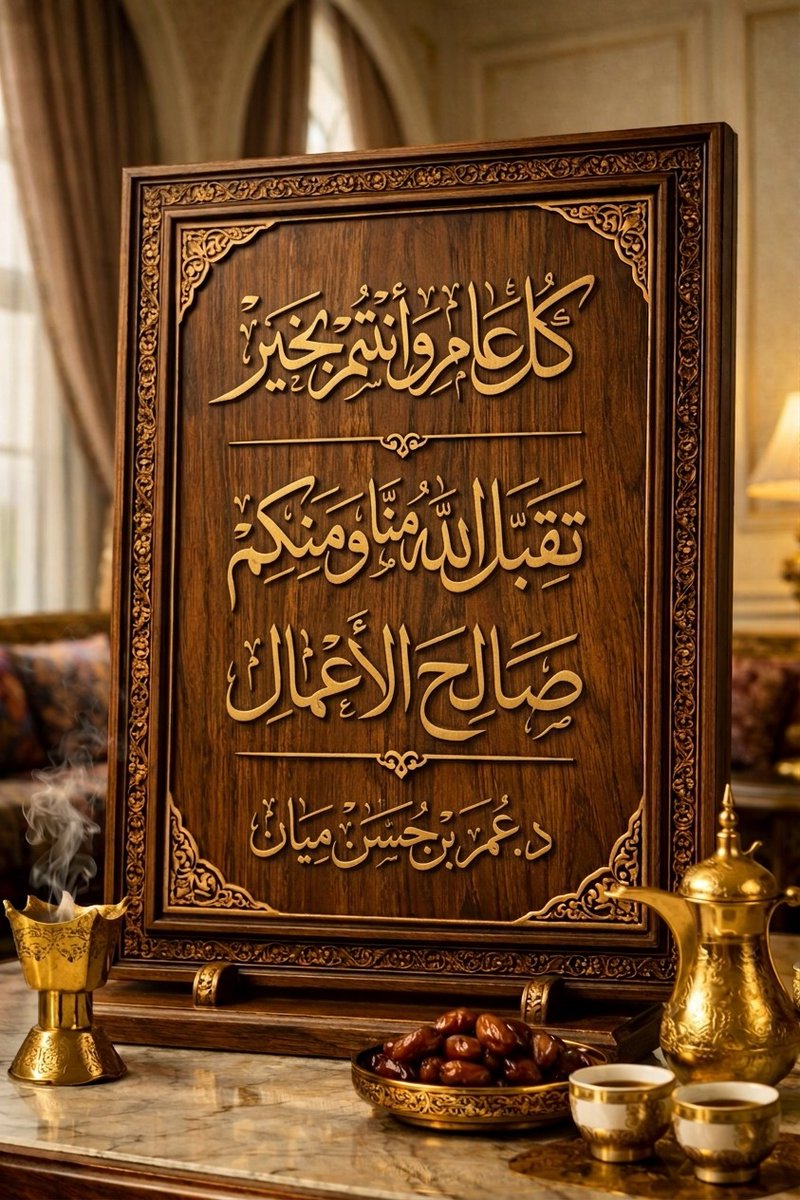 كُل عَام وَأَنتُمْ بِخَيْر
تَقَبَّل اللَّه مُنَّا وَمَنِكِمْ
صَالِحَ الأَعْمَالِ
د. عُمَر بْن حُسَن مِيَان